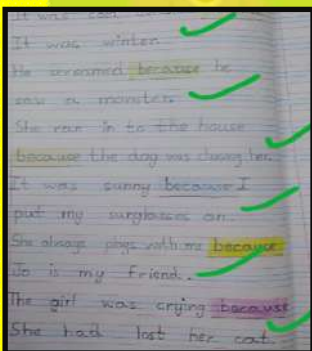 It was cold
It was winter.
He screamed because he
saw a monster.
She ran in to the house
because the dog was chasing her.
It was sunny because I
put my sunglasses on.
She always plays with me because
Jo is my friend.
The girl was crying because
She had lost her cat.